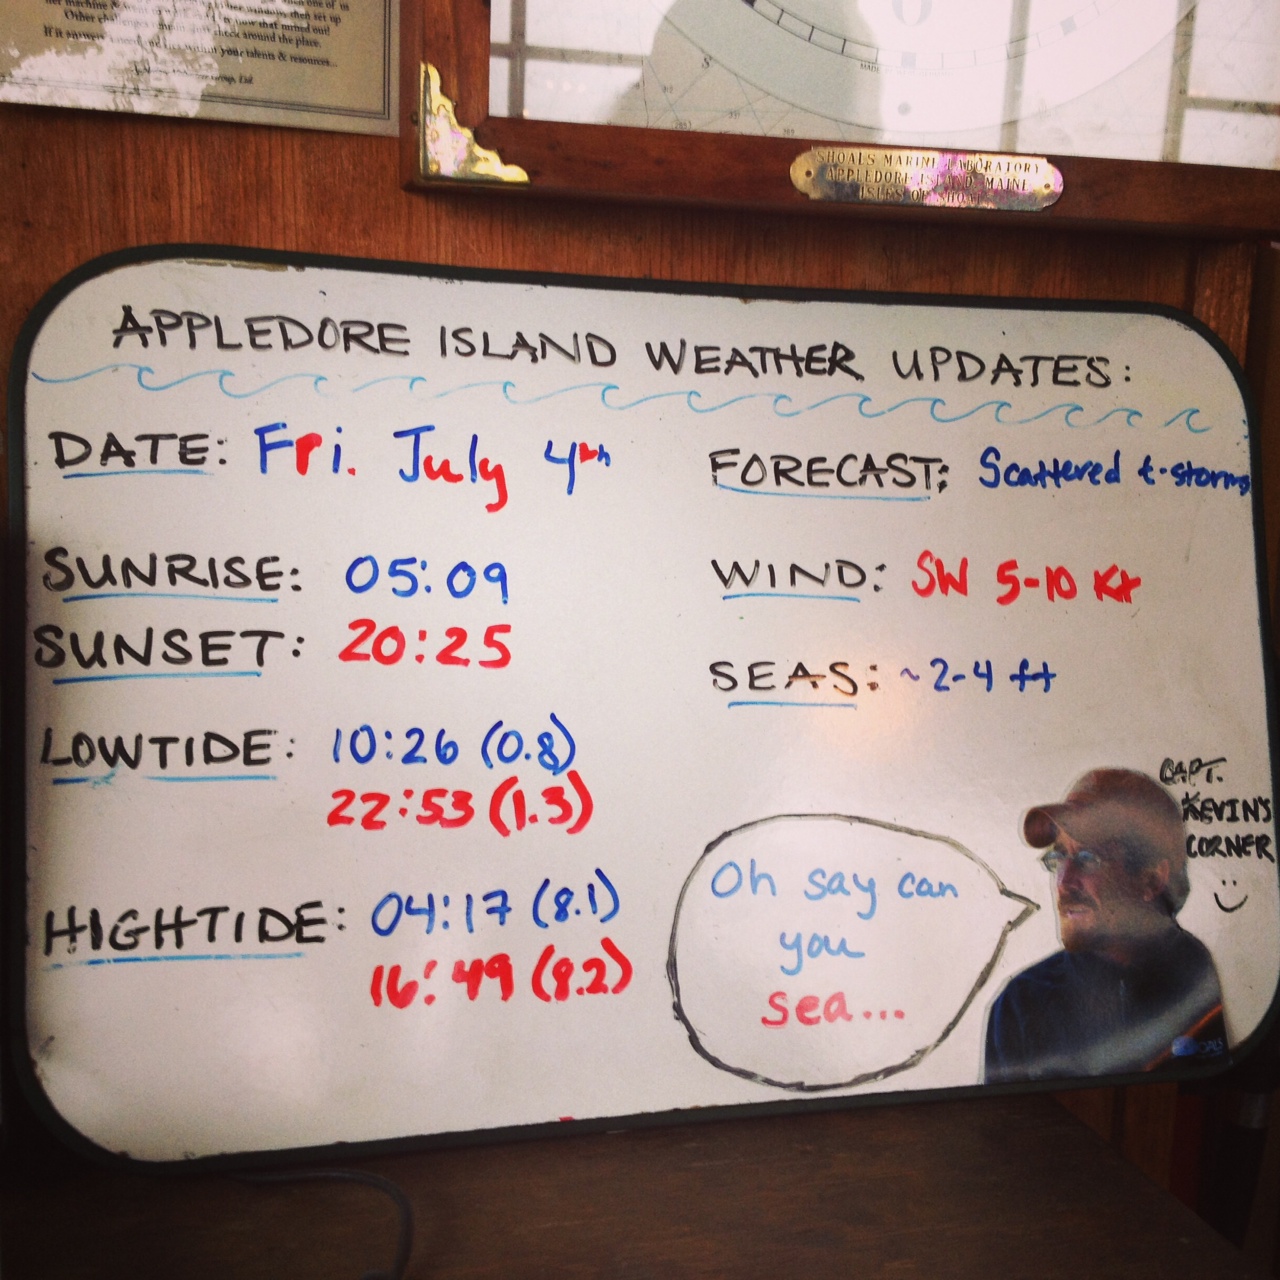 one of us
her machine & window, then set up
Other challenges now that turned out!
check around the place.
If it your talents & resources...
Group, Ltd.
S
MADE
SHOALS MARINE LABORATORY
APPLEDORE ISLAND MAINE
ISLES OF SHOALS
APPLEDORE ISLAND WEATHER UPDATES:
DATE: Fri. July 4th
FORECAST: Scattered t-storms
SUNRISE: 05:09
WIND: SW 5-10 Kt
SUNSET: 20:25
SEAS: ~2-4 ft
LOWTIDE: 10:26 (0.8)
22:53 (1.3)
HIGHTIDE: 04:17 (8.1)
16:49 (8.2)
CAPT.
KEVIN'S
CORNER
Oh say can
you
sea...